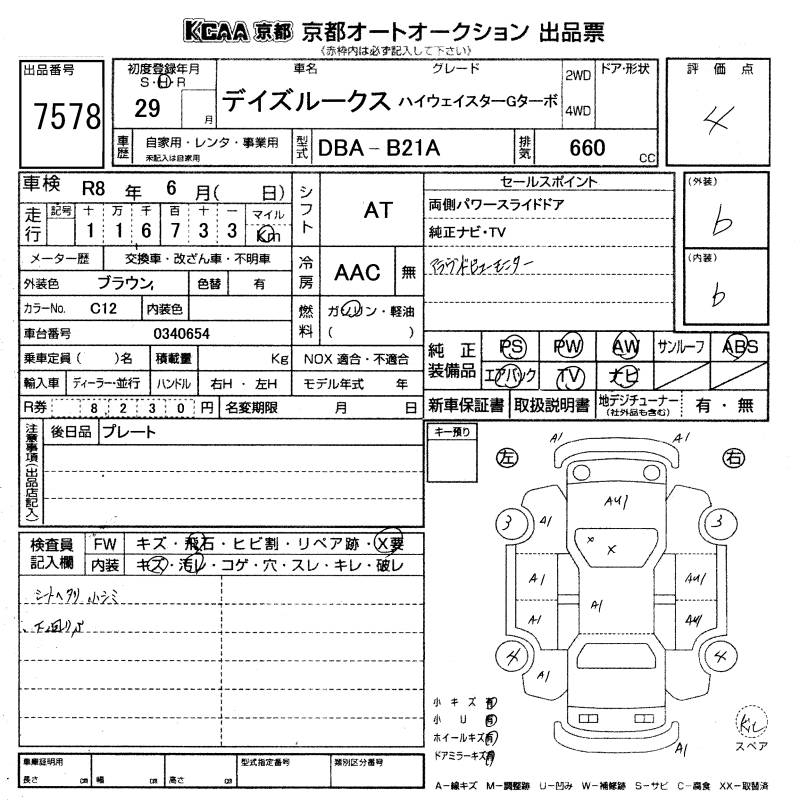 KCAA 京都 京都オートオークション 出品票
《赤枠内は必ず記入して下さい》
出品番号
7578
初度登録年月
S・H・R
29 月
車名 グレード
デイズルークス ハイウェイスターGターボ
2WD
4WD
ドア・形状
評価点
4
車歴
自家用・レンタ・事業用
未記入は自家用
型式 DBA－B21A
排気 660 CC
車検 R8 年 6 月( 日)
走行 記号 十 万 千 百 十 一 マイル
1 1 6 7 3 3 Km
メーター歴 交換車・改ざん車・不明車
外装色 ブラウン 色替 有
カラーNo. C12 内装色
車台番号 0340654
乗車定員( )名 積載量 Kg
輸入車 ディーラー・並行 ハンドル 右H・左H
R券 8230円 名変期限 月 日
シフト AT
冷房 AAC 無
燃料 ガソリン・軽油
( )
NOX 適合・不適合
モデル年式 年
セールスポイント
両側パワースライドドア
純正ナビ・TV
アラウンドビューモニター
(外装)
b
(内装)
b
純正装備品
PS PW AW サンルーフ ABS
エアバック TV ナビ
新車保証書 取扱説明書 地デジチューナー
(社外品も含む)
有・無
注意事項(出品店記入)
後日品 プレート
キー預り
検査員記入欄
FW キズ・飛石・ヒビ割・リペア跡・X要
内装 キズ・汚レ・コゲ・穴・スレ・キレ・破レ
シートヘタリ 小シミ
下回りサ
左 右
A1 A1
AU1
3 A1 3
X X
A1 A1 AU1
A1 AU1
4 4
A1
A1
小キズ 有
小U 有
ホイールキズ 有
ドアミラーキズ 有
スペア
車庫証明用
長さ cm 幅 cm 高さ cm
型式指定番号
類別区分番号
A－線キズ M－調整跡 U－凹み W－補修跡 S－サビ C－腐食 XX－取替済